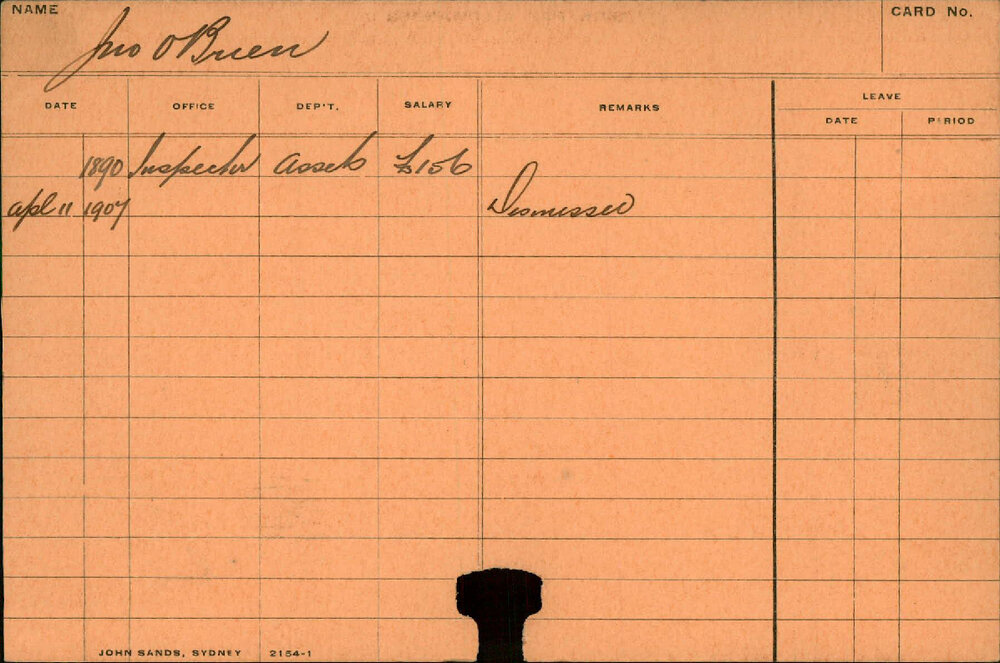 NAME
CARD No.
Jno O'Brien
DATE OFFICE DEP'T. SALARY REMARKS LEAVE
DATE PERIOD
1890 Inspector Assets £156
Apl 11 1907 Dismissed
JOHN SANDS, SYDNEY 2154-1